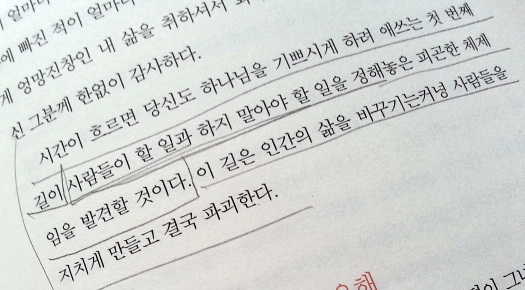 얼마나
에 빠진 적이 얼마나
게 엉망진창인 내 삶을 취하셔서
신 그분께 한없이 감사하다.
시간이 흐르면 당신도 하나님을 기쁘시게 하려 애쓰는 첫 번째
길이 사람들이 할 일과 하지 말아야 할 일을 정해놓은 피곤한 체제
임을 발견할 것이다. 이 길은 인간의 삶을 바꾸기는커녕 사람들을
지치게 만들고 결국 파괴한다.